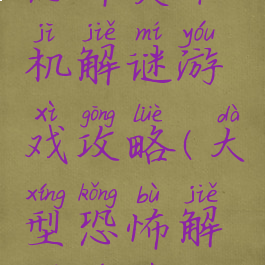 jī jiě mí yóu
机解谜游
xì gōng lüè dà
戏攻略(大
xíng kǒng bù jiě
型恐怖解